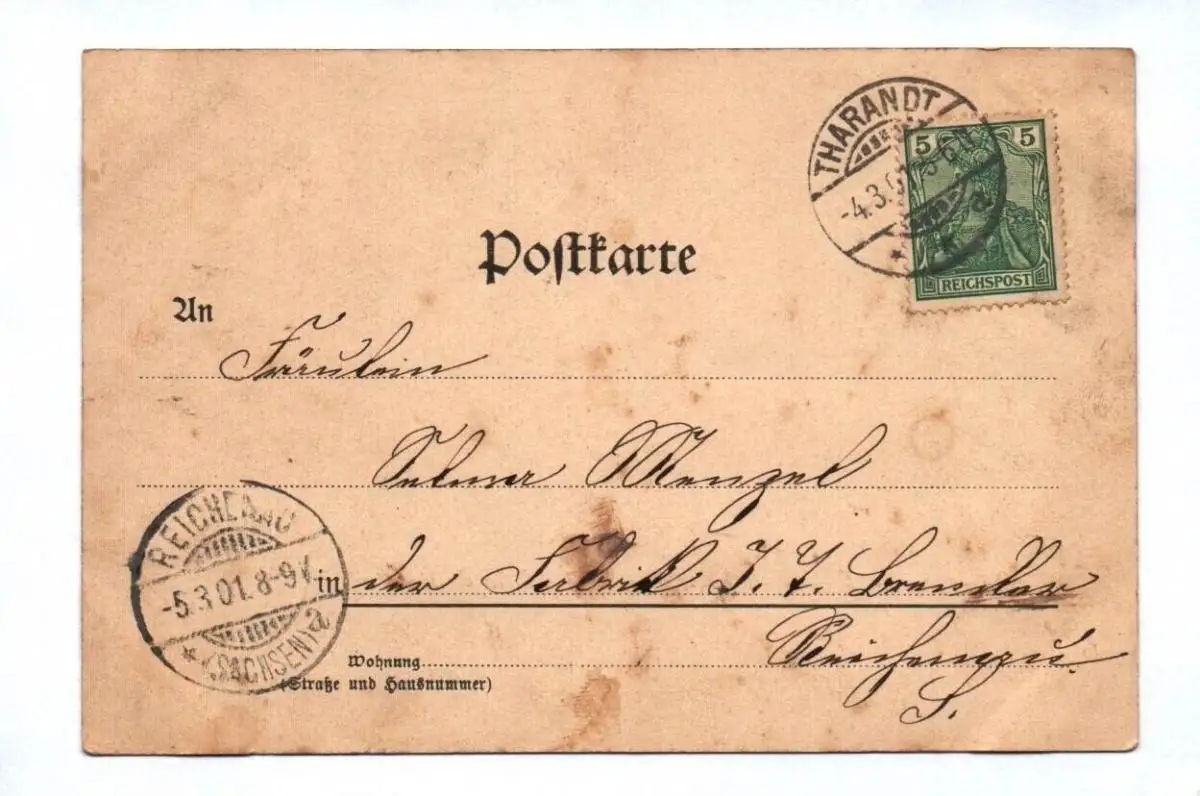 THARANDT
-4.3.01. 5-6 N
a
5 5
REICHSPOST
Postkarte
An
Fräulein
Selma Menzel
in der Fabrik J. T. Brendler
Reichenau
S.
REICHENAU
-5.3.01. 8-9 V
(SACHSEN) a
Wohnung
(Straße und Hausnummer)